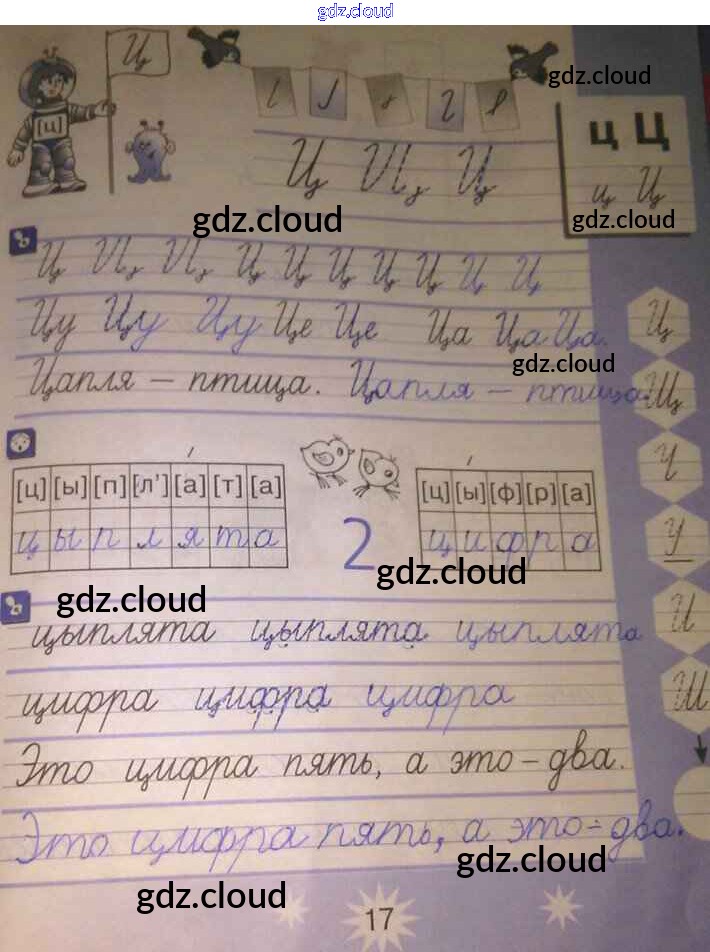 gdz.cloud
Ц
gdz.cloud
[ц]
Ц Ц
ц Ц
ц Ц
gdz.cloud
gdz.cloud
Ц Ц Ц Ц Ц Ц Ц Ц
Цу Цу Цу Це Це Ца Ца Ца.
Ц
gdz.cloud
Цапля – птица. Цапля – птица.
Щ
[ц] [ы] [п] [л'] [а] [т] [а]
ц ы п л я т а
[ц] [ы] [ф] [р] [а]
ц и ф р а
2
Ч
У
gdz.cloud
gdz.cloud
цыплята цыплята цыплята
И
цифра цифра цифра
Ш
Это цифра пять, а это – два.
Это цифра пять, а это – два.
gdz.cloud
gdz.cloud
17